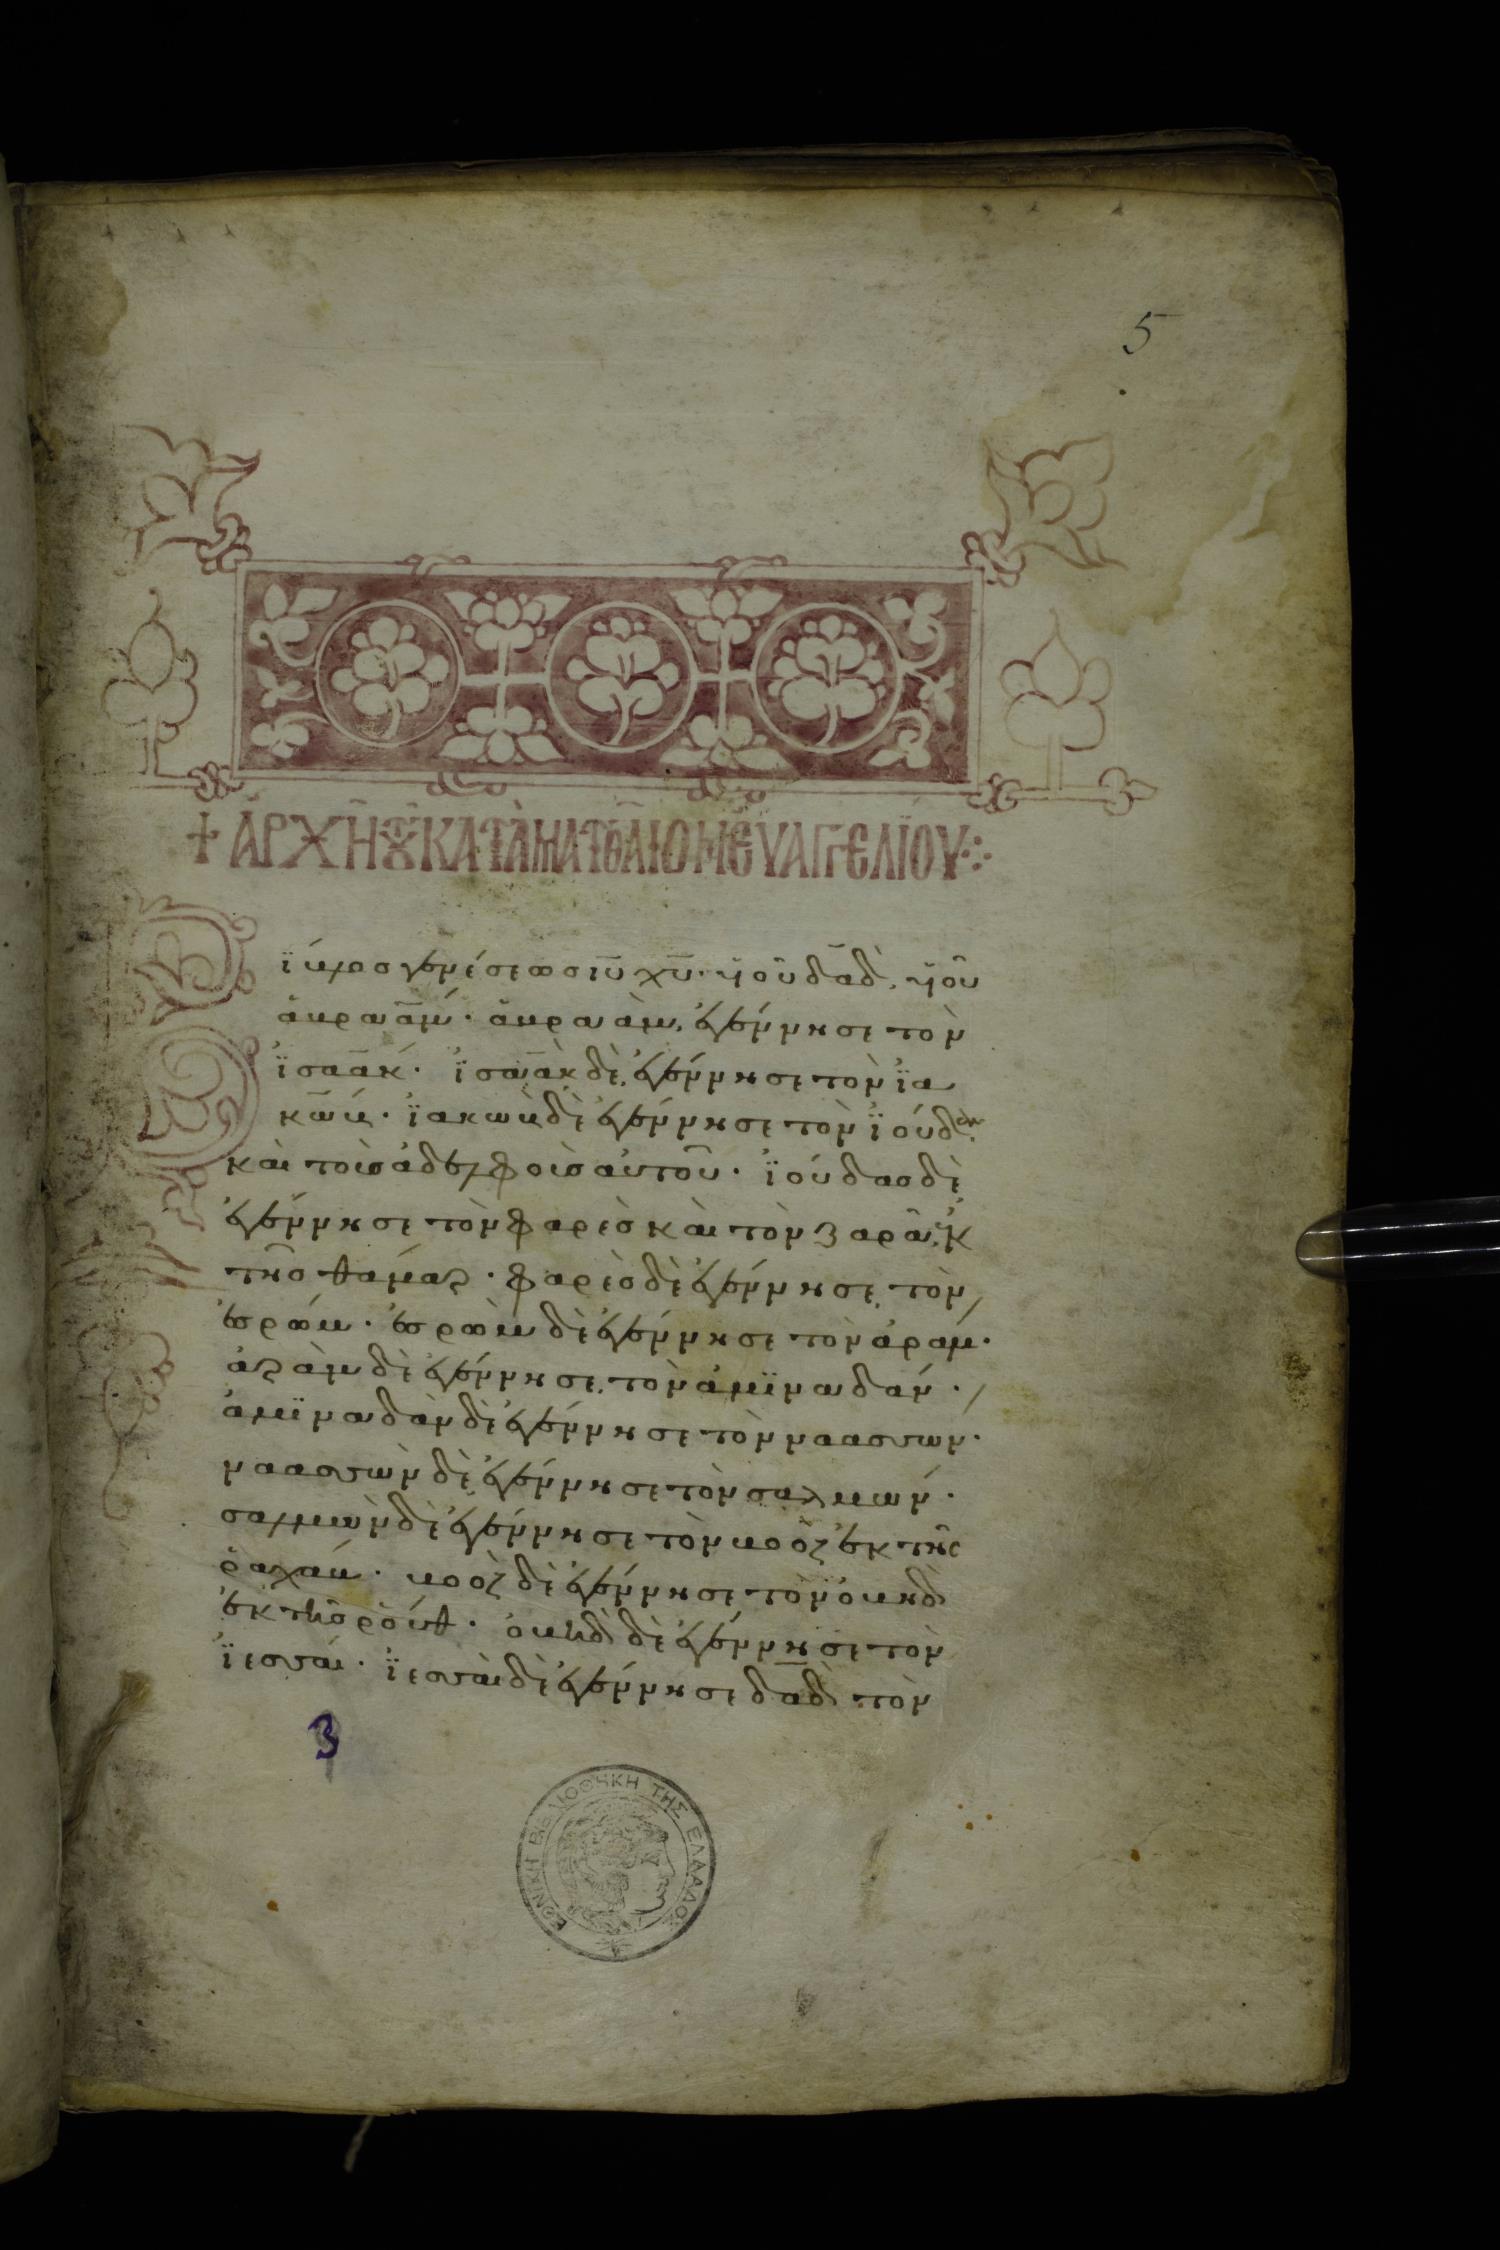 5
+ ἈΡΧῊ ΤΟΥ͂ ΚΑΤᾺ ΜΑΤΘΑῖΟΝ ΕΥ̓ΑΓΓΕΛΊΟΥ ⁘
Βίβλος γενέσεως ιῡ χῡ· υἱοῦ δᾱδ, υἱοῦ
ἀβραάμ· ἀβραὰμ ἐγέννησε τὸν
ἰσαάκ· ἰσαὰκ δὲ ἐγέννησε τὸν ἰα
κώβ· ἰακὼβ δὲ ἐγέννησε τὸν ἰούδαν
καὶ τοὶσ ἀδελφοὶσ αὐτοῦ· ἰούδασ δὲ
ἐγέννησε τὸν φαρὲσ καὶ τὸν ζαρὰ ἐκ
τῆσ θάμαρ· φαρὲσ δὲ ἐγέννησε τὸν
ἐσρώμ· ἐσρὼμ δὲ ἐγέννησε τὸν ἀράμ·
ἀρὰμ δὲ ἐγέννησε τὸν ἀμϊναδάμ·
ἀμϊναδὰμ δὲ ἐγέννησε τὸν ναασσών·
ναασσὼν δὲ ἐγέννησε τὸν σαλμών·
σαλμὼν δὲ ἐγέννησε τὸν βοὸζ ἐκ τῆς
ῥαχάβ· βοὸζ δὲ ἐγέννησε τὸν ὀβὴδ
ἐκ τῆσ ῥούθ· ὀβὴδ δὲ ἐγέννησε τὸν
ἰεσσαί· ἰεσσαὶ δὲ ἐγέννησε δᾱδ τὸν
3
ΕΘΝΙΚΗ ΒΙΒΛΙΟΘΗΚΗ ΤΗΣ ΕΛΛΑΔΟΣ